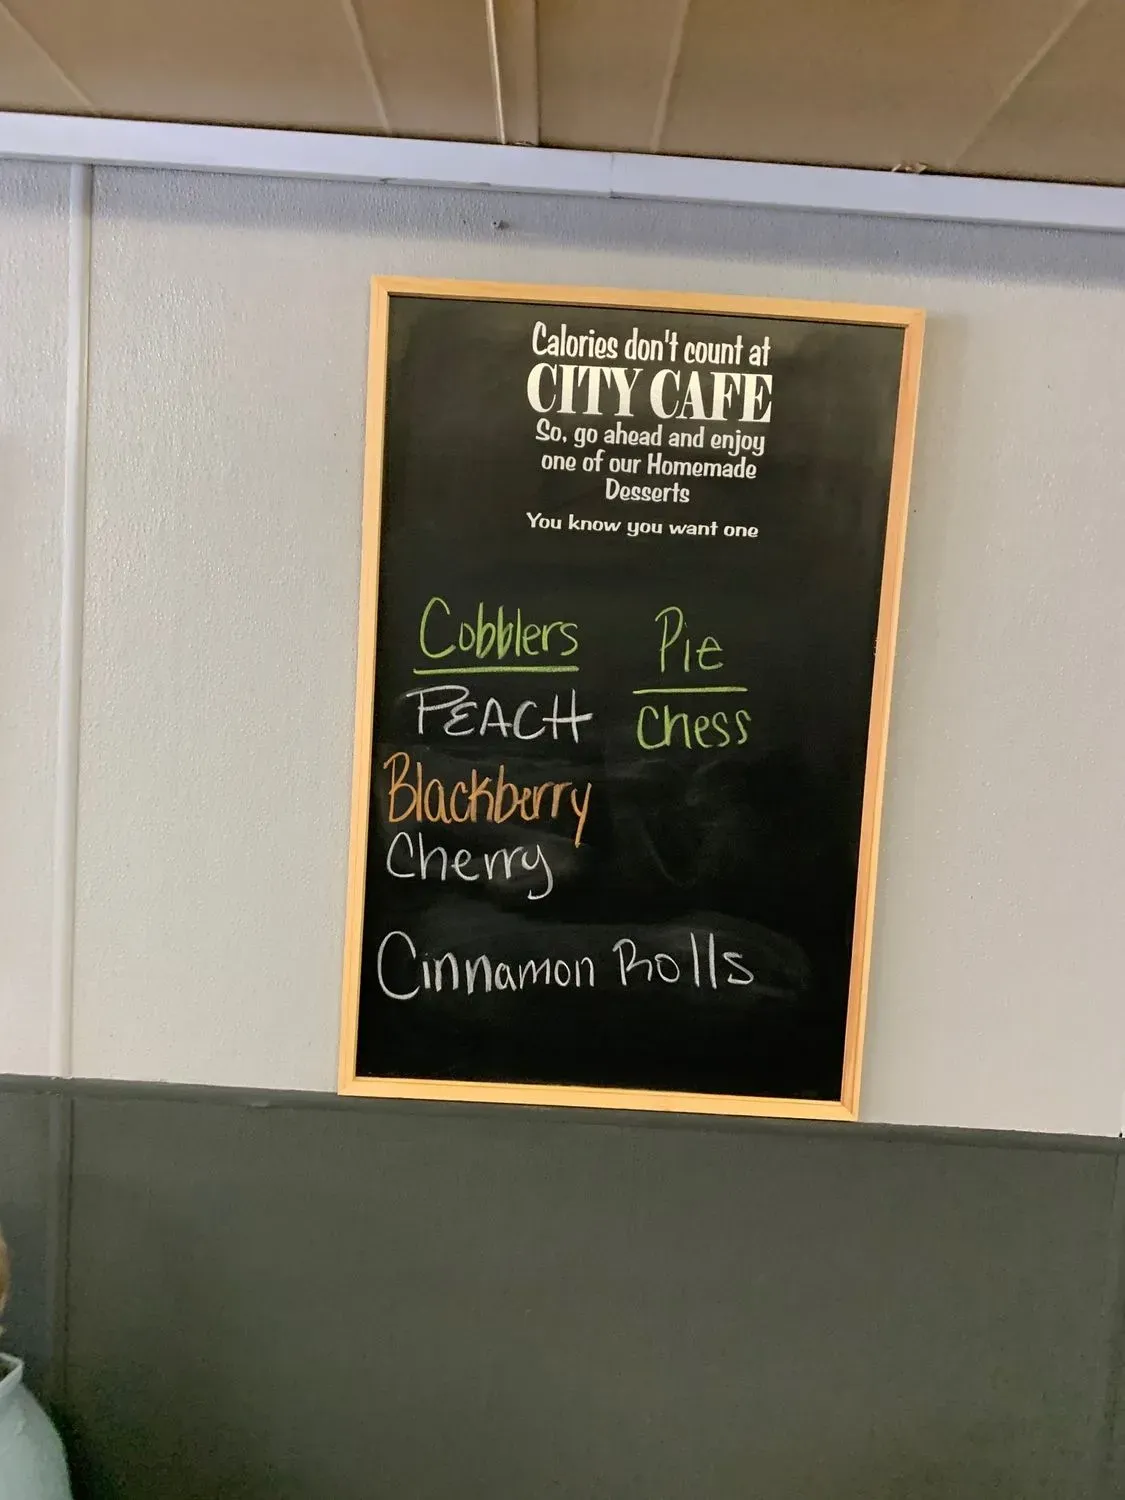 Calories don't count at
CITY CAFE
So, go ahead and enjoy
one of our Homemade
Desserts
You know you want one
Cobblers
PEACH
Blackberry
Cherry
Pie
Chess
Cinnamon Rolls